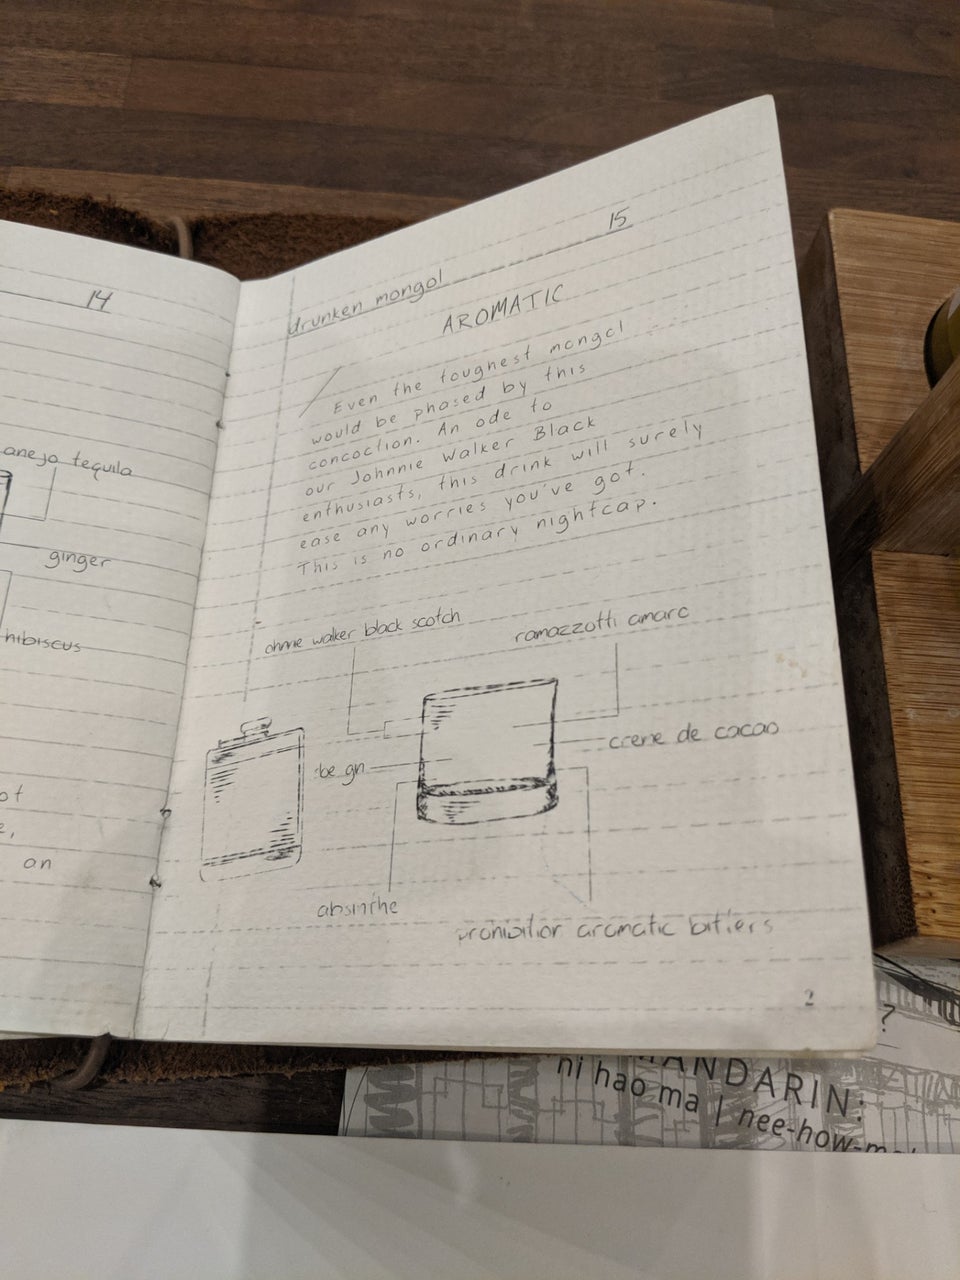 14
anejo tequila
ginger
hibiscus
ot
e,
an
drunken mongol 15
AROMATIC
Even the toughest mongol
would be phased by this
concoction. An ode to
our Johnnie Walker Black
enthusiasts, this drink will surely
ease any worries you've got.
This is no ordinary nightcap.
ohnie walker black scotch
ramazzotti amaro
creme de cacao
absinthe
prohibition aromatic bitters
2
?
MANDARIN:
ni hao ma | nee-how-ma